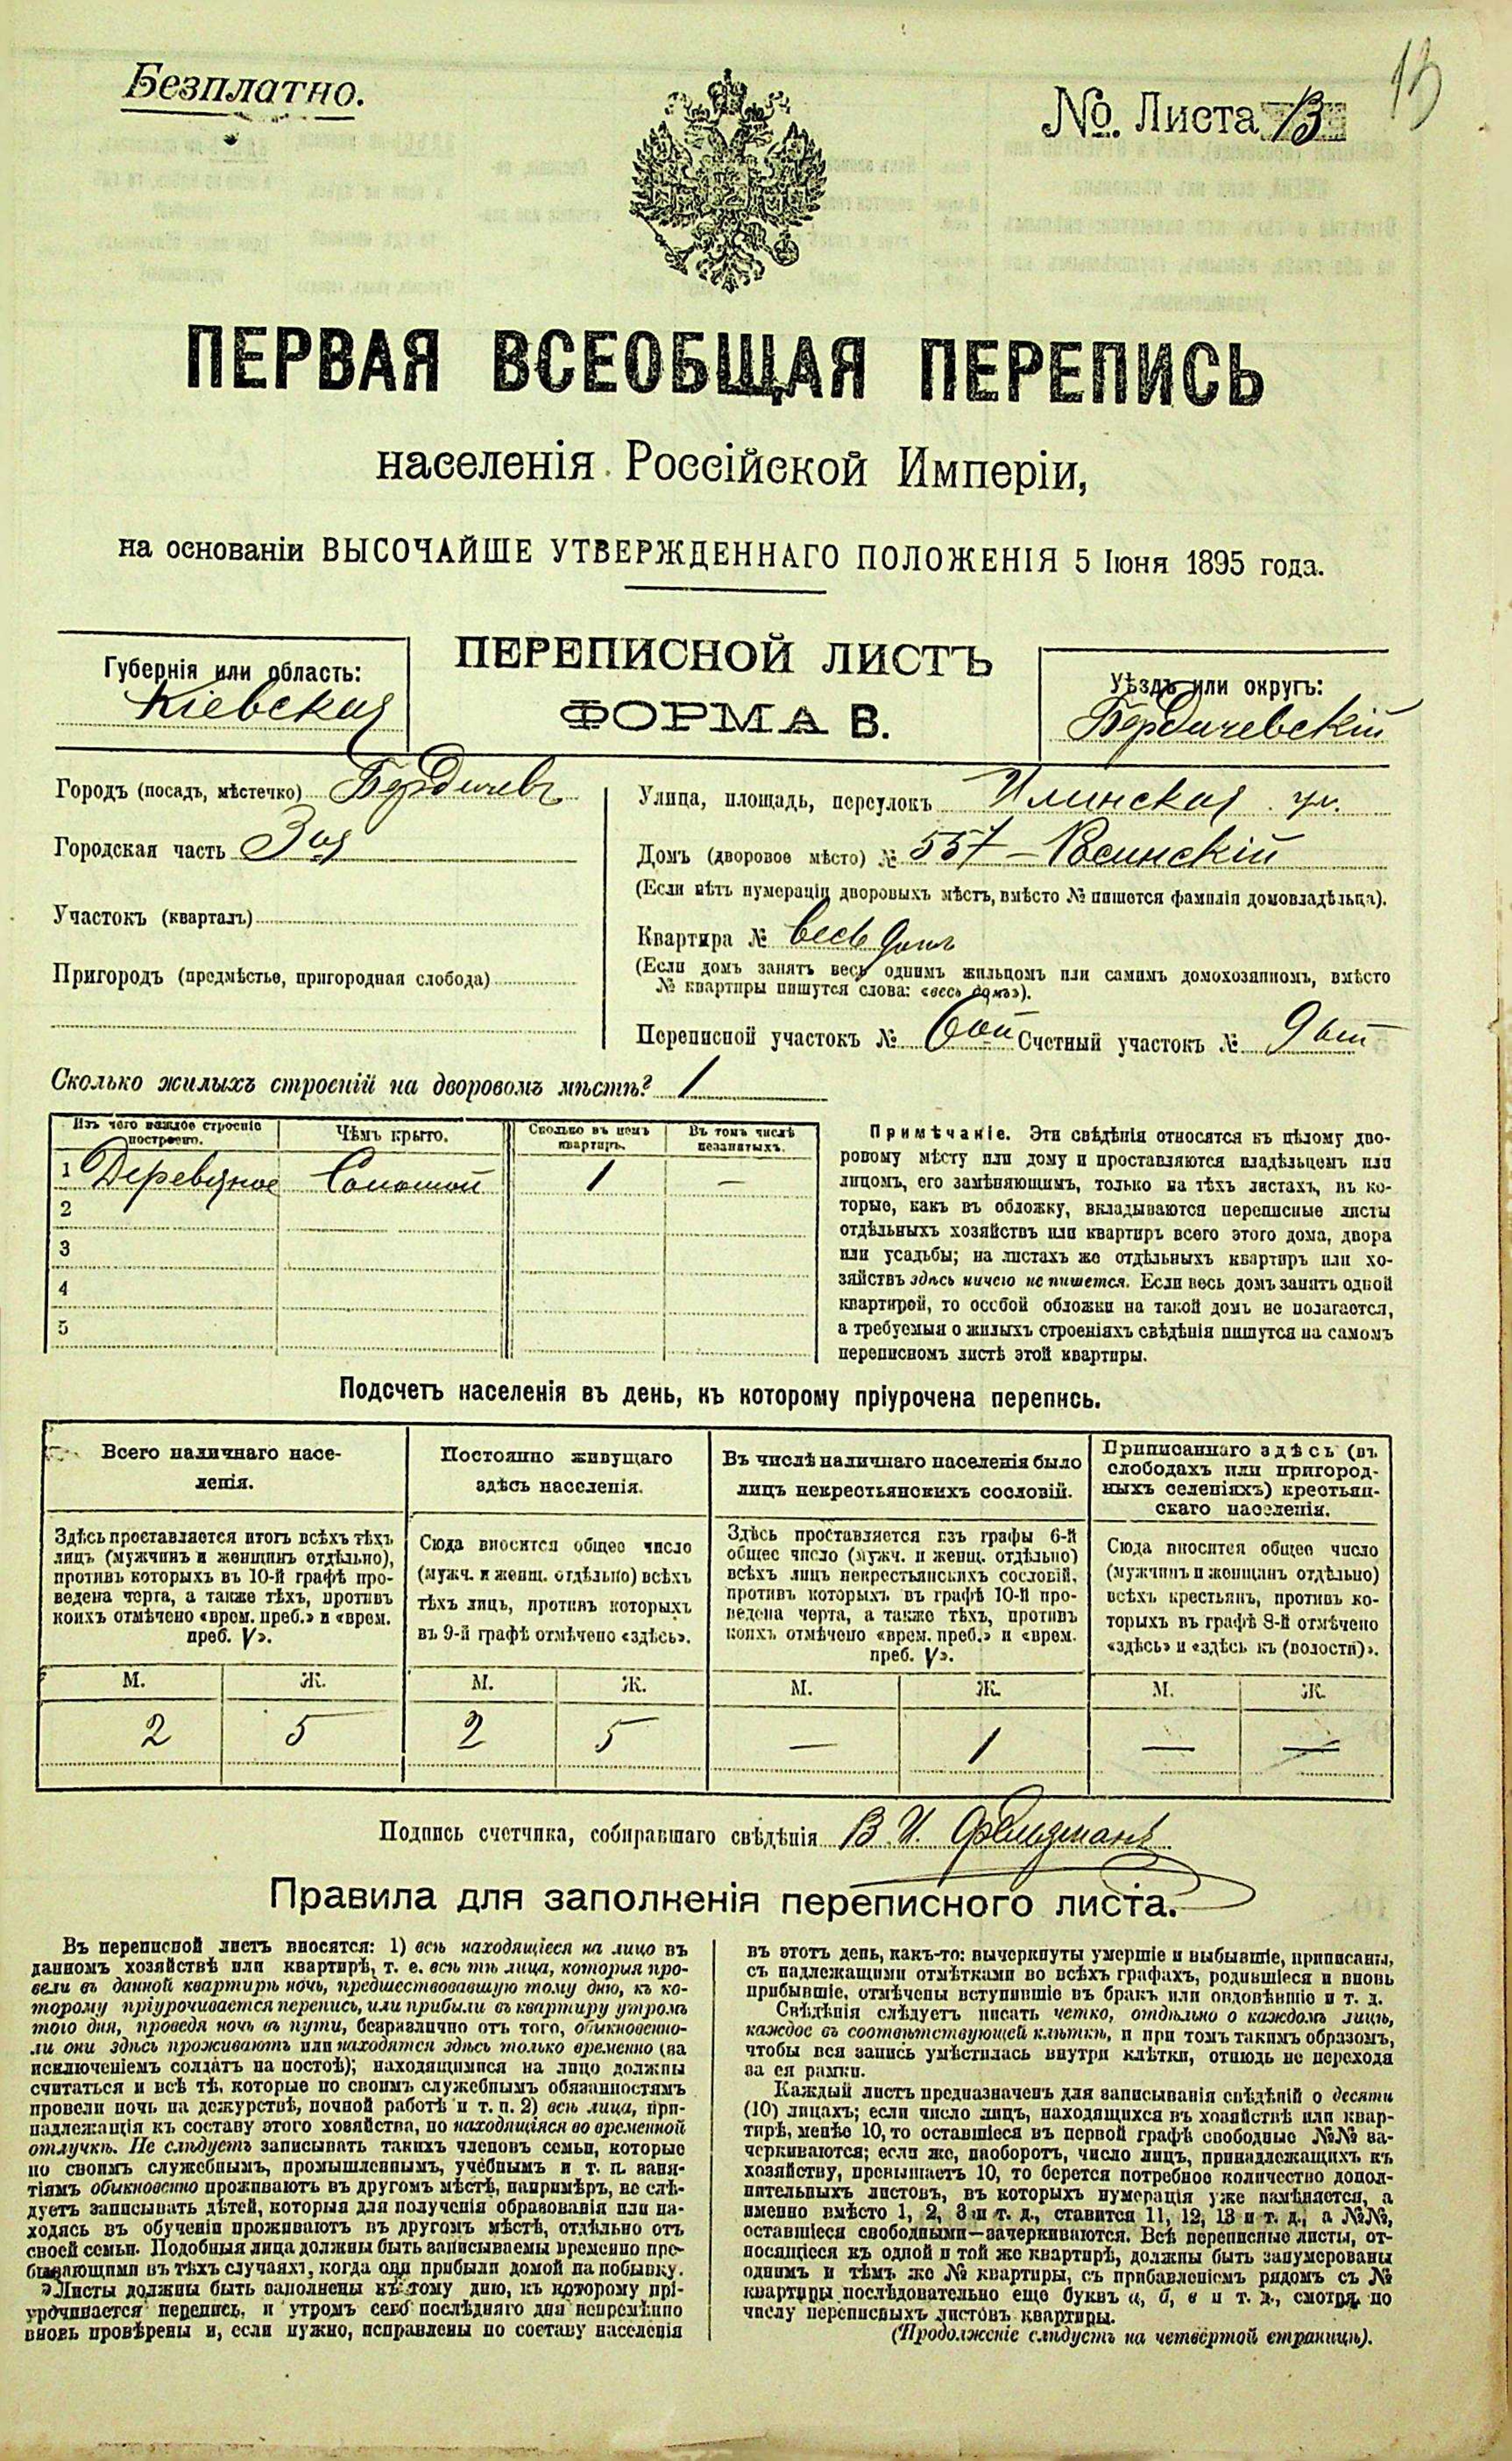 Безплатно.
№. Листа 13
13
ПЕРВАЯ ВСЕОБЩАЯ ПЕРЕПИСЬ
населенія Россійской Имперіи,
на основаніи ВЫСОЧАЙШЕ УТВЕРЖДЕННАГО ПОЛОЖЕНІЯ 5 Іюня 1895 года.
Губернія или область:
Кіевская
ПЕРЕПИСНОЙ ЛИСТЪ
ФОРМА В.
Уѣздъ или округъ:
Бердичевскій
Городъ (посадъ, мѣстечко) Бердичевъ
Городская часть 3ая
Участокъ (кварталъ)
Пригородъ (предмѣстье, пригородная слобода)
Улица, площадь, переулокъ Илинская ул.
Домъ (дворовое мѣсто) № 557 – Росинскій
(Если нѣтъ нумераціи дворовыхъ мѣстъ, вмѣсто № пишется фамилія домовладѣльца).
Квартира № весь домъ
(Если домъ занятъ весь однимъ жильцомъ или самимъ домохозяиномъ, вмѣсто
№ квартиры пишутся слова: «весь домъ»).
Переписной участокъ № 6ой Счетный участокъ № 9ый
Сколько жилыхъ строеній на дворовомъ мѣстѣ? 1
Изъ чего каждое строеніе построено.
Чѣмъ крыто.
Сколько въ немъ квартиръ.
Въ томъ числѣ незанятыхъ.
1 Деревяное Соломой 1 —
2
3
4
5
Примѣчаніе. Эти свѣдѣнія относятся къ цѣлому дво-
ровому мѣсту или дому и проставляются владѣльцемъ или
лицомъ, его замѣняющимъ, только на тѣхъ листахъ, въ ко-
торые, какъ въ обложку, вкладываются переписные листы
отдѣльныхъ хозяйствъ или квартиръ всего этого дома, двора
или усадьбы; на листахъ же отдѣльныхъ квартиръ или хо-
зяйствъ здѣсь ничего не пишется. Если весь домъ занятъ одной
квартирой, то особой обложки на такой домъ не полагается,
а требуемыя о жилыхъ строеніяхъ свѣдѣнія пишутся на самомъ
переписномъ листѣ этой квартиры.
Подсчетъ населенія въ день, къ которому пріурочена перепись.
Всего наличнаго насе-
ленія.
Здѣсь проставляется итогъ всѣхъ тѣхъ
лицъ (мужчинъ и женщинъ отдѣльно),
противъ которыхъ въ 10-й графѣ про-
ведена черта, а также тѣхъ, противъ
коихъ отмѣчено «врем. преб.» и «врем.
преб. V».
Постоянно живущаго
здѣсь населенія.
Сюда вносится общее число
(мужч. и женщ. отдѣльно) всѣхъ
тѣхъ лицъ, противъ которыхъ
въ 9-й графѣ отмѣчено «здѣсь».
Въ числѣ наличнаго населенія было
лицъ некрестьянскихъ сословій.
Здѣсь проставляется изъ графы 6-й
общее число (мужч. и женщ. отдѣльно)
всѣхъ лицъ некрестьянскихъ сословій,
противъ которыхъ въ графѣ 10-й про-
ведена черта, а также тѣхъ, противъ
коихъ отмѣчено «врем. преб.» и «врем.
преб. V».
Приписаннаго здѣсь (въ
слободахъ или пригород-
ныхъ селеніяхъ) крестьян-
скаго населенія.
Сюда вносится общее число
(мужчинъ и женщинъ отдѣльно)
всѣхъ крестьянъ, противъ ко-
торыхъ въ графѣ 8-й отмѣчено
«здѣсь» и «здѣсь къ (волости)».
М. Ж. М. Ж. М. Ж. М. Ж.
2 5 2 5 — 1 — —
Подпись счетчика, собиравшаго свѣдѣнія В. И. Фельдманъ
Правила для заполненія переписного листа.
Въ переписной листъ вносятся: 1) всѣ находящіеся на лицо въ
данномъ хозяйствѣ или квартирѣ, т. е. всѣ тѣ лица, которыя про-
вели въ данной квартирѣ ночь, предшествовавшую тому дню, къ ко-
торому пріурочивается перепись, или прибыли въ квартиру утромъ
того дня, проведя ночь въ пути, безразлично отъ того, обыкновенно-
ли они здѣсь проживаютъ или находятся здѣсь только временно (за
исключеніемъ солдатъ на постоѣ); находящимися на лицо должны
считаться и всѣ тѣ, которые по своимъ служебнымъ обязанностямъ
провели ночь на дежурствѣ, ночной работѣ и т. п. 2) всѣ лица, при-
надлежащія къ составу этого хозяйства, но находящіяся во временной
отлучкѣ. Не слѣдуетъ записывать такихъ членовъ семьи, которые
по своимъ служебнымъ, промышленнымъ, учебнымъ и т. п. заня-
тіямъ обыкновенно проживаютъ въ другомъ мѣстѣ, напримѣръ, не слѣ-
дуетъ записывать дѣтей, которыя для полученія образованія или на-
ходясь въ обученіи проживаютъ въ другомъ мѣстѣ, отдѣльно отъ
своей семьи. Подобныя лица должны быть записываемы временно пре-
бывающими въ тѣхъ случаяхъ, когда они прибыли домой на побывку.
Листы должны быть заполнены къ тому дню, къ которому прі-
урочивается перепись, и утромъ сего послѣдняго дня непремѣнно
вновь провѣрены и, если нужно, исправлены по составу населенія
въ этотъ день, какъ-то: вычеркнуты умершіе и выбывшіе, приписаны,
съ надлежащими отмѣтками во всѣхъ графахъ, родившіеся и вновь
прибывшіе, отмѣчены вступившіе въ бракъ или овдовѣвшіе и т. д.
Свѣдѣнія слѣдуетъ писать четко, отдѣльно о каждомъ лицѣ,
каждое въ соотвѣтствующей клѣткѣ, и при томъ такимъ образомъ,
чтобы вся запись умѣстилась внутри клѣтки, отнюдь не переходя
за ея рамки.
Каждый листъ предназначенъ для записыванія свѣдѣній о десяти
(10) лицахъ; если число лицъ, находящихся въ хозяйствѣ или квар-
тирѣ, менѣе 10, то оставшіеся въ первой графѣ свободные №№ за-
черкиваются; если же, наоборотъ, число лицъ, принадлежащихъ къ
хозяйству, превышаетъ 10, то берется потребное количество допол-
нительныхъ листовъ, въ которыхъ нумерація уже измѣняется, а
именно вмѣсто 1, 2, 3 и т. д., ставится 11, 12, 13 и т. д., а №№,
оставшіеся свободными—зачеркиваются. Всѣ переписные листы, от-
носящіеся къ одной и той же квартирѣ, должны быть занумерованы
однимъ и тѣмъ же № квартиры, съ прибавленіемъ рядомъ съ №
квартиры послѣдовательно еще буквъ а, б, в и т. д., смотря по
числу переписныхъ листовъ квартиры.
(Продолженіе слѣдуетъ на четвертой страницѣ).